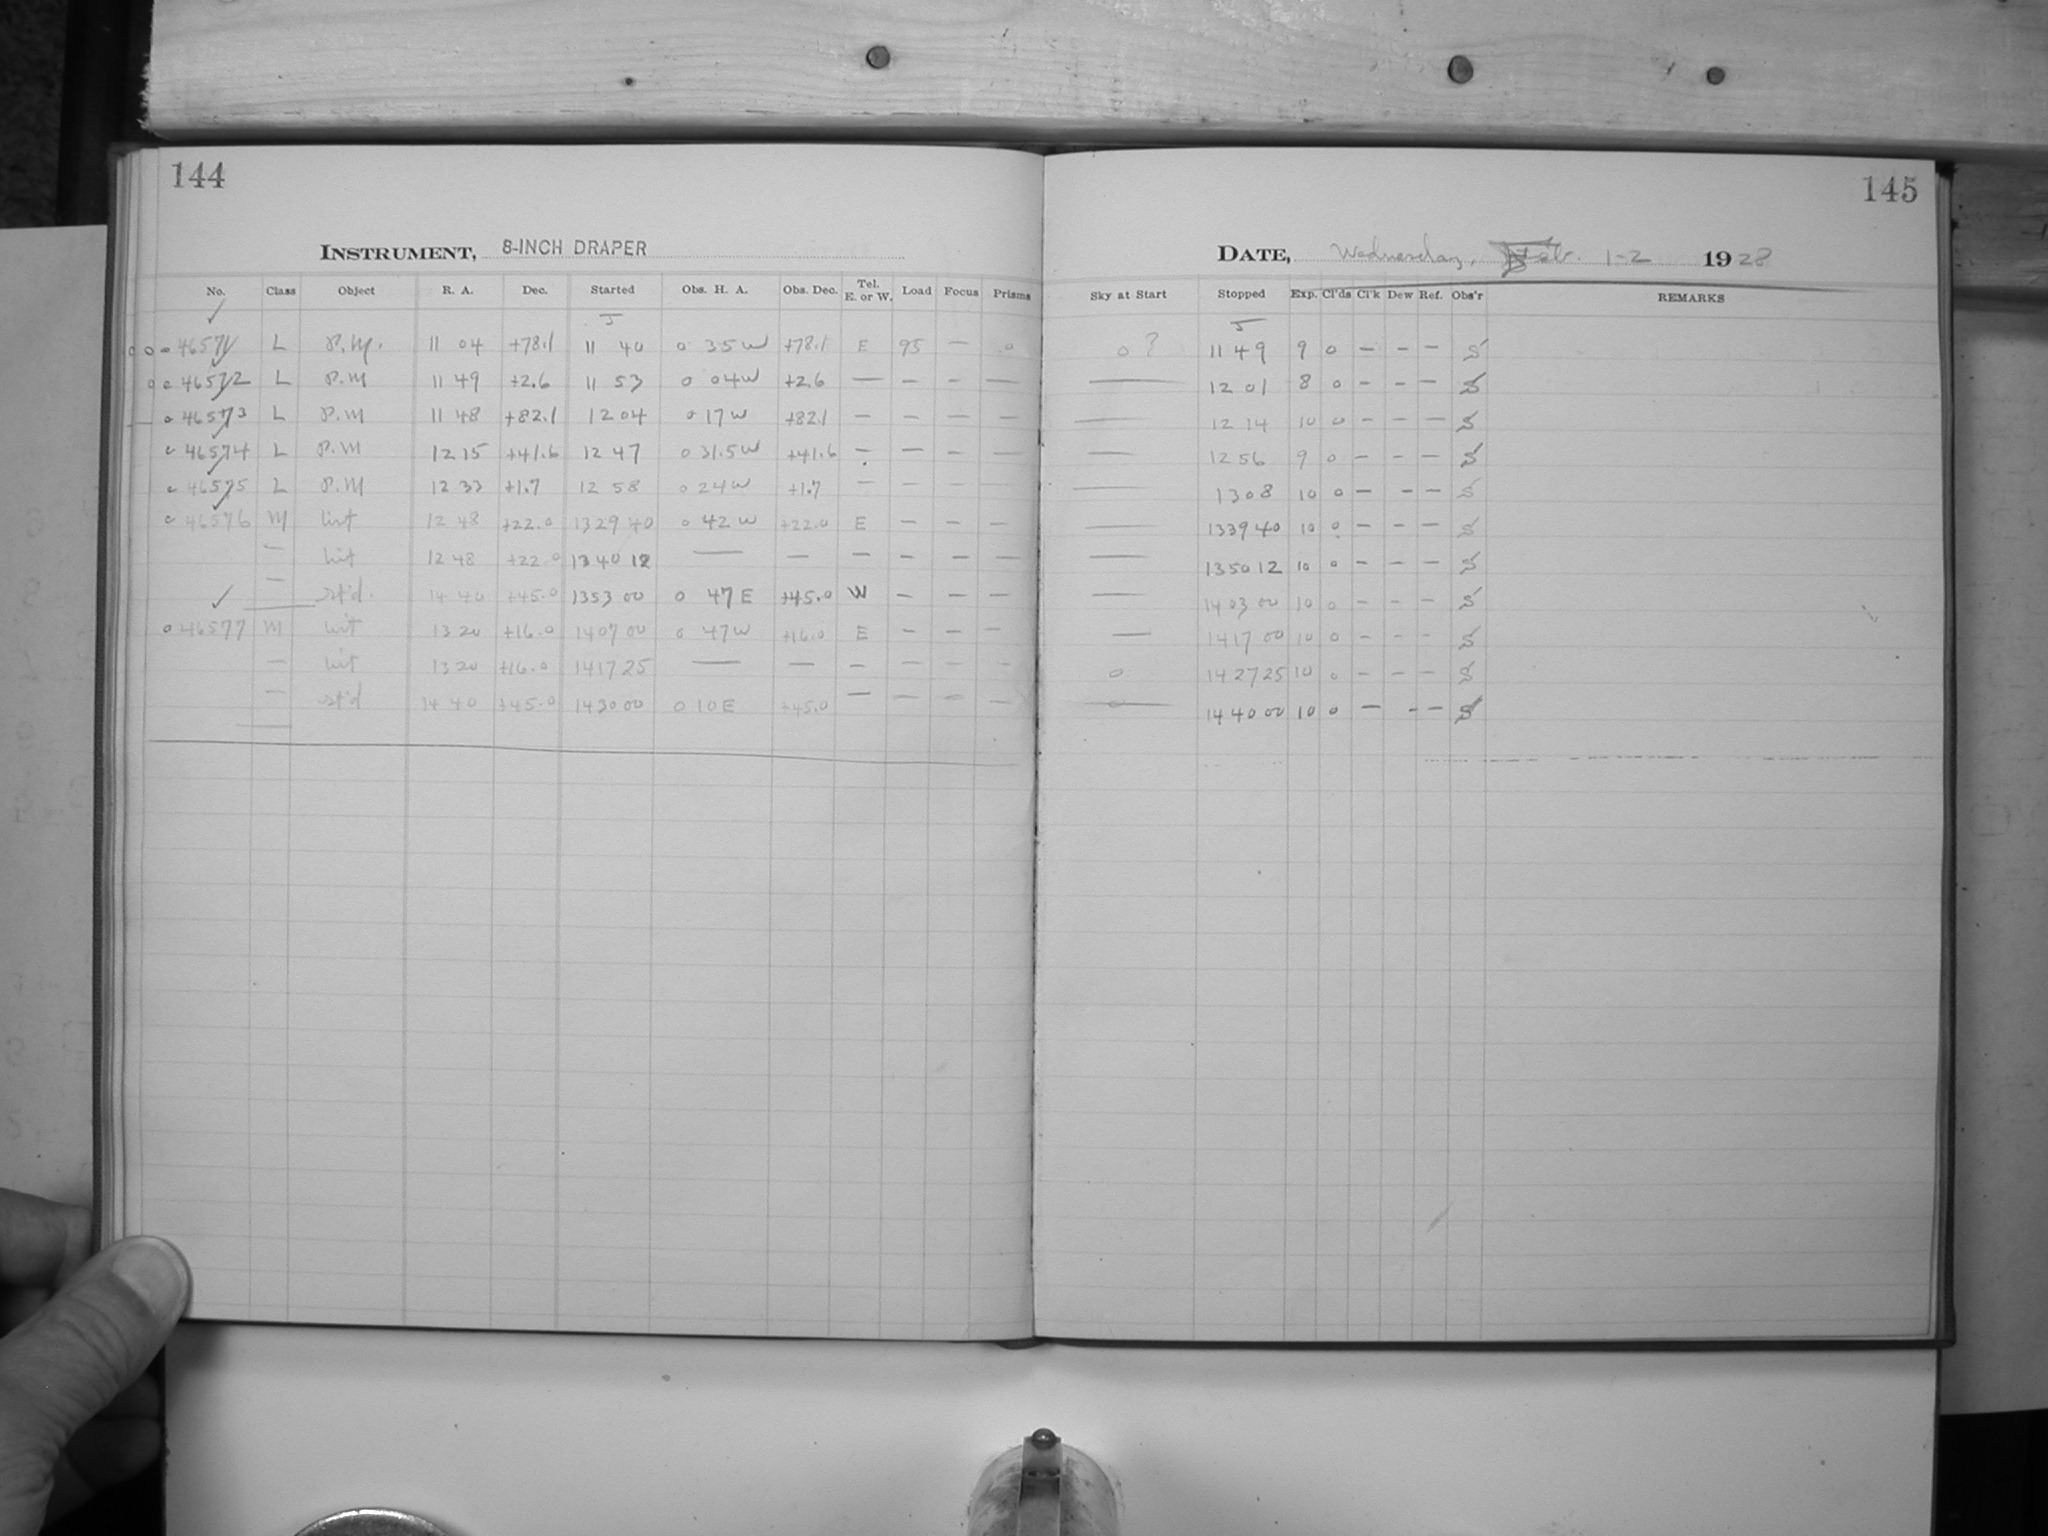 144
INSTRUMENT, 8-INCH DRAPER
No. Class Object R. A. Dec. Started Obs. H. A. Obs. Dec. Tel. E. or W. Load Focus Prisms
46571 L P.M. 11 04 +78.1 11 40 0 35 W +78.1 E 95 — 0
46572 L P.M 11 49 +2.6 11 53 0 04 W +2.6 — — — —
46573 L P.M 11 48 +82.1 12 04 0 17 W +82.1 — — — —
46574 L P.M 12 15 +41.6 12 47 0 31.5 W +41.6 — — — —
46575 L P.M 12 33 +1.7 12 58 0 24 W +1.7 — — — —
46576 M 12 48 +22.0 13 29 40 0 42 W +22.0 E — — —
— 12 48 +22.0 13 40 12 — — — — — —
— st'd. 14 40 +45.0 13 53 00 0 47 E +45.0 W — — —
46577 M 13 20 +16.0 14 07 00 0 47 W +16.0 E — — —
— 13 20 +16.0 14 17 25 — — — — — —
— st'd 14 40 +45.0 14 30 00 0 10 E +45.0 — — — —
145
DATE, Wednesday, Feb. 1-2 1928
Sky at Start Stopped Exp. Cl'ds Cl'k Dew Ref. Obs'r REMARKS
0 ? 11 49 9 0 — — — S
— 12 01 8 0 — — — S
— 12 14 10 0 — — — S
— 12 56 9 0 — — — S
— 13 08 10 0 — — — S
— 13 39 40 10 0 — — — S
— 13 50 12 10 0 — — — S
— 14 03 00 10 0 — — — S
— 14 17 00 10 0 — — — S
0 14 27 25 10 0 — — — S
14 40 00 10 0 — — — S